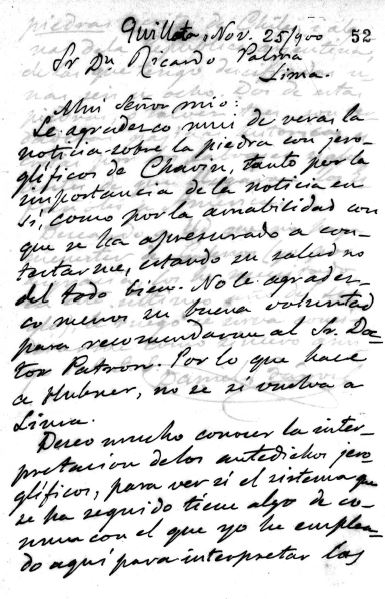 Quillota, Nov. 25/900 52
Sr Dn Ricardo Palma
Lima.
Mui Señor mio:
Le agradesco mui de veras la
noticia sobre la piedra con jero-
glíficos de Chavin, tanto por la
importancia de la noticia en
sí, como por la amabilidad con
que se ha apresurado a con-
testarme, estando su salud no
del todo bien. No le agrades-
co menos su buena voluntad
para recomendarme al Sr. Doc-
tor Patron. Por lo que hace
a Hubner, no se si vuelva a
Lima.
Deseo mucho conocer la inter-
pretacion de los antedichos jero-
glíficos, para ver si el sistema que
se ha seguido tiene algo de co-
mun con el que yo he emplea-
do aquí para interpretar las